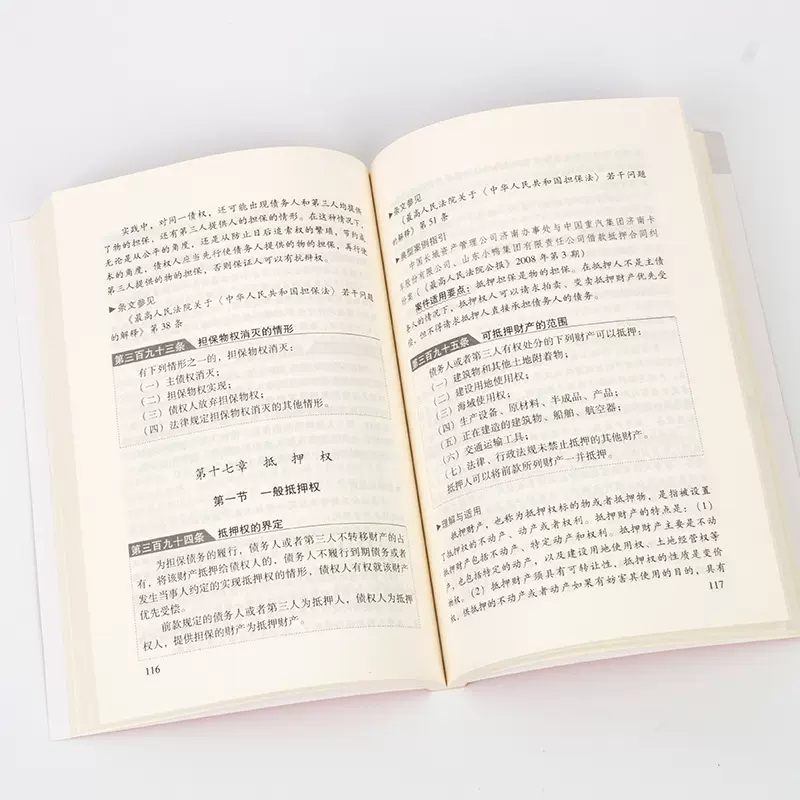 实践中，对同一债权，还可能出现债务人和第三人均提供
了物的担保，还有第三人提供人的担保的情形。在这种情况下，
无论是从公平的角度，还是从防止日后追索权的繁琐，节约成
本的角度，债权人应当先行使债务人提供的物的担保，再行使
第三人提供的物的担保，否则保证人可以有抗辩权。
▶条文参见
《最高人民法院关于〈中华人民共和国担保法〉若干问题
的解释》第38条
第三百九十三条 担保物权消灭的情形
有下列情形之一的，担保物权消灭：
（一）主债权消灭；
（二）担保物权实现；
（三）债权人放弃担保物权；
（四）法律规定担保物权消灭的其他情形。
第十七章 抵押权
第一节 一般抵押权
第三百九十四条 抵押权的界定
为担保债务的履行，债务人或者第三人不转移财产的占
有，将该财产抵押给债权人的，债务人不履行到期债务或者
发生当事人约定的实现抵押权的情形，债权人有权就该财产
优先受偿。
前款规定的债务人或者第三人为抵押人，债权人为抵押
权人，提供担保的财产为抵押财产。
116
▶条文参见
《最高人民法院关于〈中华人民共和国担保法〉若干问题
的解释》第51条
▶典型案例指引
中国长城资产管理公司济南办事处与中国重汽集团济南卡
车股份有限公司、山东小鸭集团有限责任公司借款抵押合同纠
纷案（《最高人民法院公报》2008年第3期）
案件适用要点：抵押担保是物的担保。在抵押人不是主债
务人的情况下，抵押权人可以请求拍卖、变卖抵押财产优先受
偿，但不得请求抵押人直接承担债务人的债务。
第三百九十五条 可抵押财产的范围
债务人或者第三人有权处分的下列财产可以抵押：
（一）建筑物和其他土地附着物；
（二）建设用地使用权；
（三）海域使用权；
（四）生产设备、原材料、半成品、产品；
（五）正在建造的建筑物、船舶、航空器；
（六）交通运输工具；
（七）法律、行政法规未禁止抵押的其他财产。
抵押人可以将前款所列财产一并抵押。
▶理解与适用
抵押财产，也称为抵押权标的物或者抵押物，是指被设置
了抵押权的不动产、动产或者权利。抵押财产的特点是：（1）
抵押财产包括不动产、特定动产和权利。抵押财产主要是不动
产，也包括特定的动产，以及建设用地使用权、土地经营权等
物权。（2）抵押财产须具有可转让性，抵押权的性质是变价
权，供抵押的不动产或者动产如果有妨害其使用的目的，具有
117